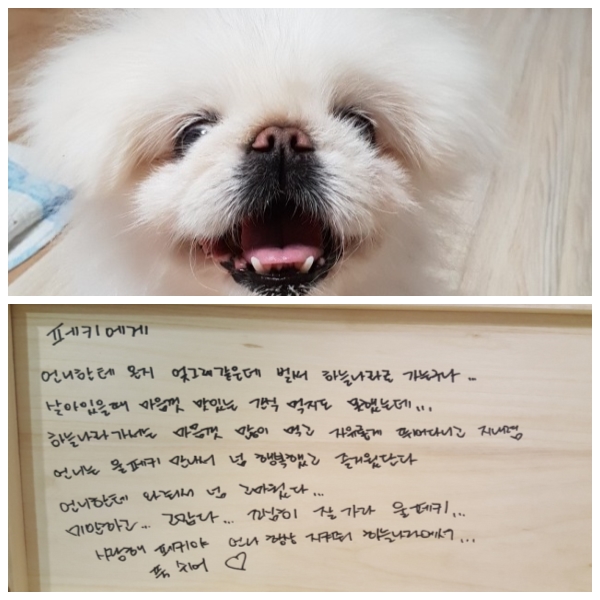 페키에게
언니한테 온지 엊그제같은데 벌써 하늘나라로 가는구나..
살아있을때 마음껏 맛있는 간식 먹지도 못했는데...
하늘나라가서는 마음껏 많이 먹고 자유롭게 뛰어다니고 지내렴
언니는 울페키 만나서 넘 행복했고 즐거웠단다
언니한테 와줘서 넘 고마웠다...
미안하고... 고맙다... 조심히 잘가라 울페키...
사랑해 페키야 언니 항상 지켜줘 하늘나라에서...
푹 쉬어 ♡